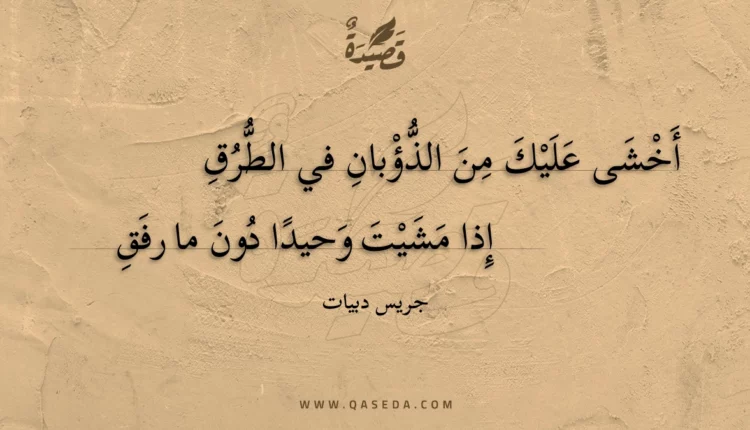 قَصِيدَةٌ
أَخْشَى عَلَيْكَ مِنَ الذُّؤْبانِ في الطُّرُقِ
إِذا مَشَيْتَ وَحيدًا دُونَ ما رفَقِ
جريس دبيات
WWW.QASEDA.COM